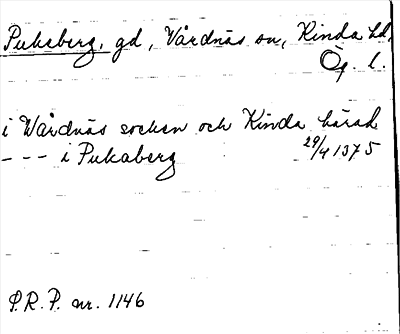 Pukeberg, gd, Vårdnäs sn, Kinda hd,
Ög. l.
i Wårdnäs socken och Kinda härad
- - - i Pukaberg 29/4 1375
P.R.P. nr. 1146